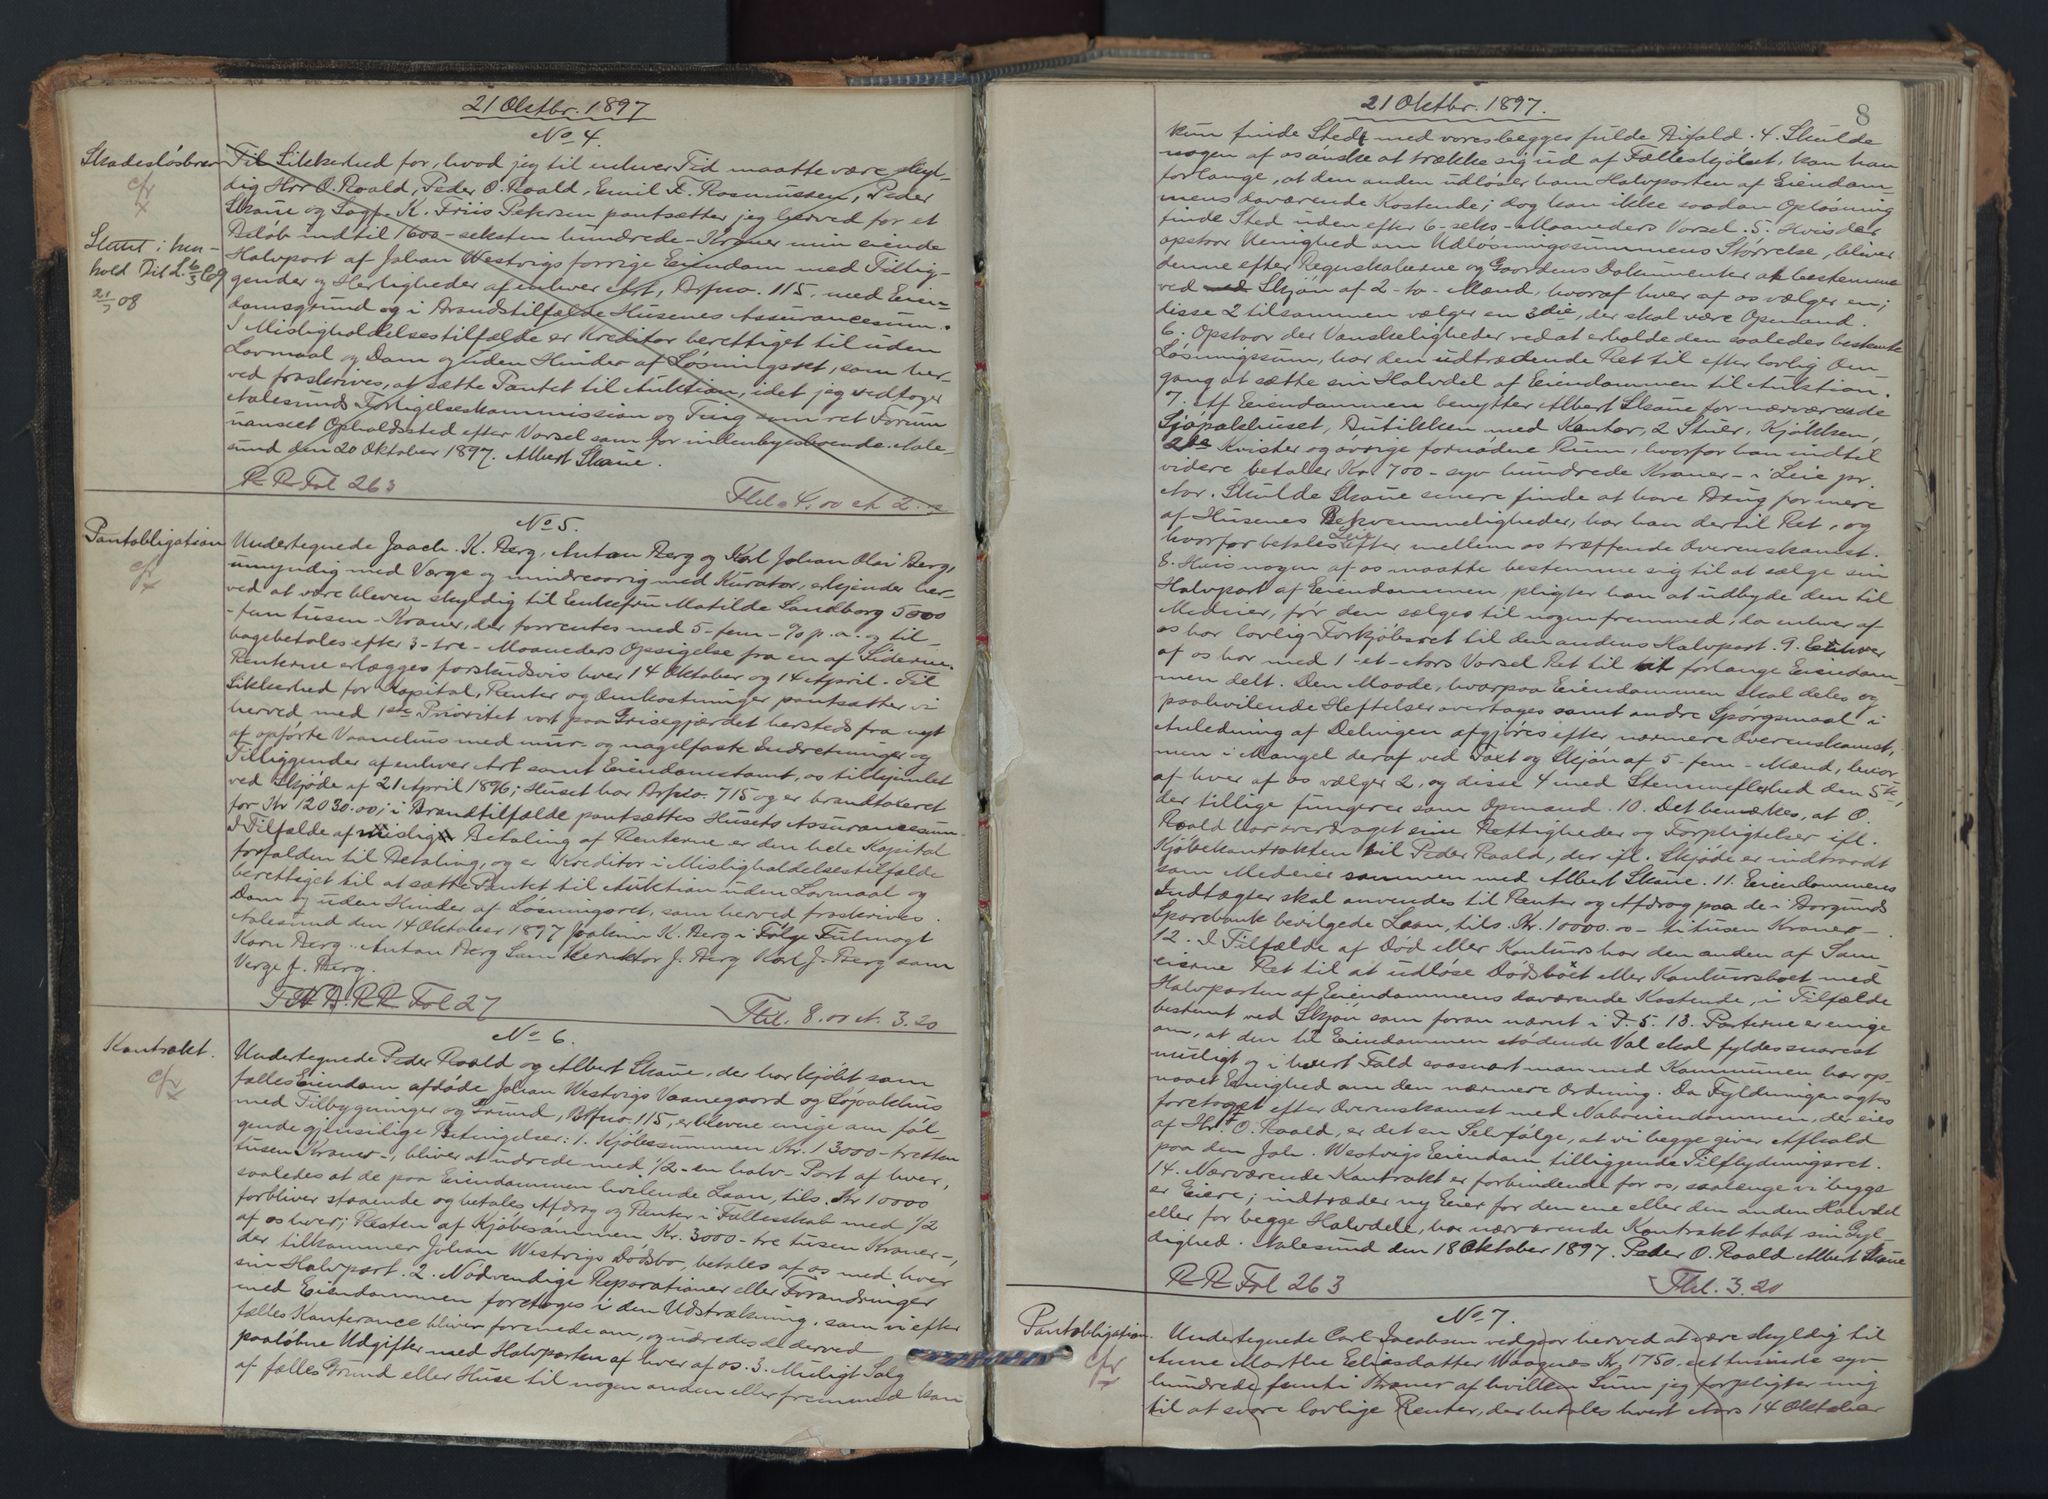 21 Oktbr. 1897
No 4.
Skadesløsbrev
cfr
x
Slettet i hen-
hold til L. 6/3 69
21/3 08
Til Sikkerhed for, hvad jeg til enhver Tid maatte være skyl-
dig Hrr O. Roald, Peder O. Roald, Emil F. Rasmussen, Peder
Skaue og Sagf. K. Friis Petersen pantsætter jeg herved for et
Beløb indtil 1600 - seksten hundrede - Kroner min eiende
Halvport af Johan Westvigs forrige Eiendom med Tillig-
gender og Herligheder af enhver Art, Brfno. 115, med Eien-
domsgrund og i Brandstilfælde Husenes Assurancesum.
I Misligholdelsestilfælde er Kreditor berettiget til uden
Lovmaal og Dom og uden Hinder af Løsningsret, som her-
ved fraskrives, at sætte Pantet til Auktion, idet jeg vedtager
Aalesunds Forligelseskommission og Ting som ret Forum
uanseet Opholdssted efter Varsel som for indenbyesboende. Aale-
sund den 20 Oktober 1897. Albert Skaue.
P R Fol 263
Thl. 4.00 et 2.
No 5.
Pantobligation
cfr
x
Undertegnede Joach. K. Berg, Anton Berg og Karl Johan Olai Berg,
umyndig med Værge og mindreaarig med Kurator, erkjender her-
ved at være bleven skyldig til Enkefru Matilde Sandborg 5000
- fem tusen - Kroner, der forrentes med 5 - fem - % p. a. og til-
bagebetales efter 3 - tre - Maaneders Opsigelse fra en af Siderne.
Renterne erlægges forskudsvis hver 14 Oktober og 14 April. Til
Sikkerhed for Kapital, Renter og Omkostninger pantsætter vi
herved med 1ste Prioritet vort paa Grisegjærdet hersteds fra nyt
af opførte Vaanehus med mur- og nagelfaste Indretninger og
Tilliggender af enhver Art samt Eiendomstomt, os tilskjødet
ved Skjøde af 21 April 1896; Huset har Brfno. 715 og er brandtaxeret
for Kr 12030.00; i Brandtilfælde pantsættes Husets Assurancesum.
I Tilfælde af mislig Betaling af Renterne er den hele Kapital
forfalden til Betaling, og er Kreditor i Misligholdelsestilfælde
berettiget til at sætte Pantet til Auktion uden Lovmaal og
Dom og uden Hinder af Løsningsret, som herved fraskrives.
Aalesund den 14 Oktober 1897 Joakim K. Berg i Følge Fulmagt
Karn Berg. Anton Berg Som Kerruktor J. Berg Karl J. Berg som
Verge J. Berg.
P R Fol 27
Thl. 8.00 et. 3.20
No 6.
Kontrakt.
cfr
x
Undertegnede Peder Roald og Albert Skaue, der har kjøbt som
fælles Eiendom afdøde Johan Westvigs Vaanegaard og Søpakhus
med Tilbygninger og Grund, Brfno. 115, er blevne enige om føl-
gende gjensidige Betingelser: 1. Kjøbesummen Kr. 13000 - tretten
tusen Kroner -, bliver at udrede med 1/2 - en halv - Part af hver,
saaledes at de paa Eiendommen hvilende Laan, tils. Kr 10000
forbliver staaende og betales Afdrag og Renter i Fællesskab med 1/2
af os hver; Resten af Kjøbesummen Kr. 3000 - tre tusen Kroner -,
der tilkommer Johan Westvigs Dødsbo, betales af os med hver
sin Halvport. 2. Nødvendige Reparationer eller Forandringer
med Eiendommen foretages i den Udstrækning, som vi efter
fælles Konferance bliver forenede om, og udredes de derved
paaløbne Udgifter med Halvparten af hver af os. 3. Muligt Salg
af fælles Grund eller Huse til nogen anden eller fremmed kan
21 Oktbr. 1897.
8
kun finde Sted med vores begges fulde Bifald. 4. Skulde
nogen af os ønske at trække sig ud af Fælleskjøbet, kan han
forlange, at den anden udløser ham Halvporten af Eiendom-
mens daværende Kostende; dog kan ikke saadan Opløsning
finde Sted uden efter 6 - seks - Maaneders Varsel. 5. Hvis der
opstaar Uenighed om Udløsningssummens Størrelse, bliver
denne efter Regnskaberne og Gaardens Dokumenter at bestemme
ved Skjøn af 2 - to - Mænd, hvoraf hver af os vælger en;
disse 2 tilsammen vælger en 3die, der skal være Opmand.
6. Opstaar der Vanskeligheder ved at erholde den saaledes bestemte
Løsningssum, har den udtrædende Ret til efter lovlig Om
gang at sætte sin Halvdel af Eiendommen til Auktion.
7. Af Eiendommen benytter Albert Skaue for nærværende
Sjøpakhuset, Butikken med Kontor, 2 Stuer, Kjøkken,
2de Kvister og øvrige fornødne Rum, hvorfor han indtil
videre betaler Kr. 700 - syv hundrede Kroner - i Leie pr.
Aar. Skulde Skaue senere finde at have Brug for mere
af Husenes Bekvemmeligheder, har han dertil Ret, og
hvorfor betales Leie efter mellem os træffende Overenskomst.
8. Hvis nogen af os maatte bestemme sig til at sælge sin
Halvport af Eiendommen, pligter han at udbyde den til
Medeier, før den sælges til nogen fremmed, da enhver af
os har lovlig Forkjøbsret til den andens Halvport. 9. Enhver
af os har med 1 - et - Aars Varsel Ret til at forlange Eiendom-
men delt. Den Maade, hvorpaa Eiendommen skal deles og
paahvilende Heftelser overtages samt andre Spørgsmaal i
Anledning af Delingen afgjøres efter nærmere Overenskomst,
men i Mangel deraf ved Taxt og Skjøn af 5 - fem - Mænd, hvor-
af hver af os vælger 2, og disse 4 med Stemmeflerhed den 5te,
der tillige fungerer som Opmand. 10. Det bemærkes, at O.
Roald har overdraget sine Rettigheder og Forpligtelser ifl.
Kjøbekontrakten til Peder Roald, der ifl. Skjøde er indtraadt
som Medeier sammen med Albert Skaue. 11. Eiendommens
Indtægter skal anvendes til Renter og Afdrag paa de i Borgunds
Sparebank bevilgede Laan, tils. Kr. 10000.00 - ti tusen Kroner -.
12. I Tilfælde af Død eller Konkurs har den anden af Sam
eierne Ret til at udløse Dødsboet eller Konkursboet med
Halvparten af Eiendommens daværende Kostende, i Tilfælde
bestemt ved Skjøn som foran nævnt i P. 5. 13. Parterne er enige
om, at den til Eiendommen stødende Val skal fyldes snarest
muligt og i hvert Fald saasnart man med Kommunen har op-
naaet Enighed om den nærmere Ordning. Da Fyldningen agtes
foretaget efter Overenskomst med Naboeiendommen, der eies
af Hr. O. Roald, er det en Selvfølge, at vi begge giver Afkald
paa den Joh. Westvigs Eiendom tilliggende Tilflydningsret.
14. Nærværende Kontrakt er forbindende for os, saalænge vi begge
er Eiere; indtræder ny Eier for den ene eller den anden Halvdel
eller for begge Halvdele, har nærværende Kontrakt tabt sin Gyl-
dighed. Aalesund den 18 Oktober 1897. Peder O. Roald Albert Skaue
P R Fol 263
Thl. 3.20
No 7.
Pantobligation.
cfr
x
Undertegnede Carl Jacobsen vedgaar herved at være skyldig til
Anne Marthe Eliasdatter Waagnes Kr. 1750 - et tusinde syv
hundrede femti Kroner af hvilken Sum jeg forpligter mig
til at svare lovlige Renter, der betales hvert Aars 14 Oktober